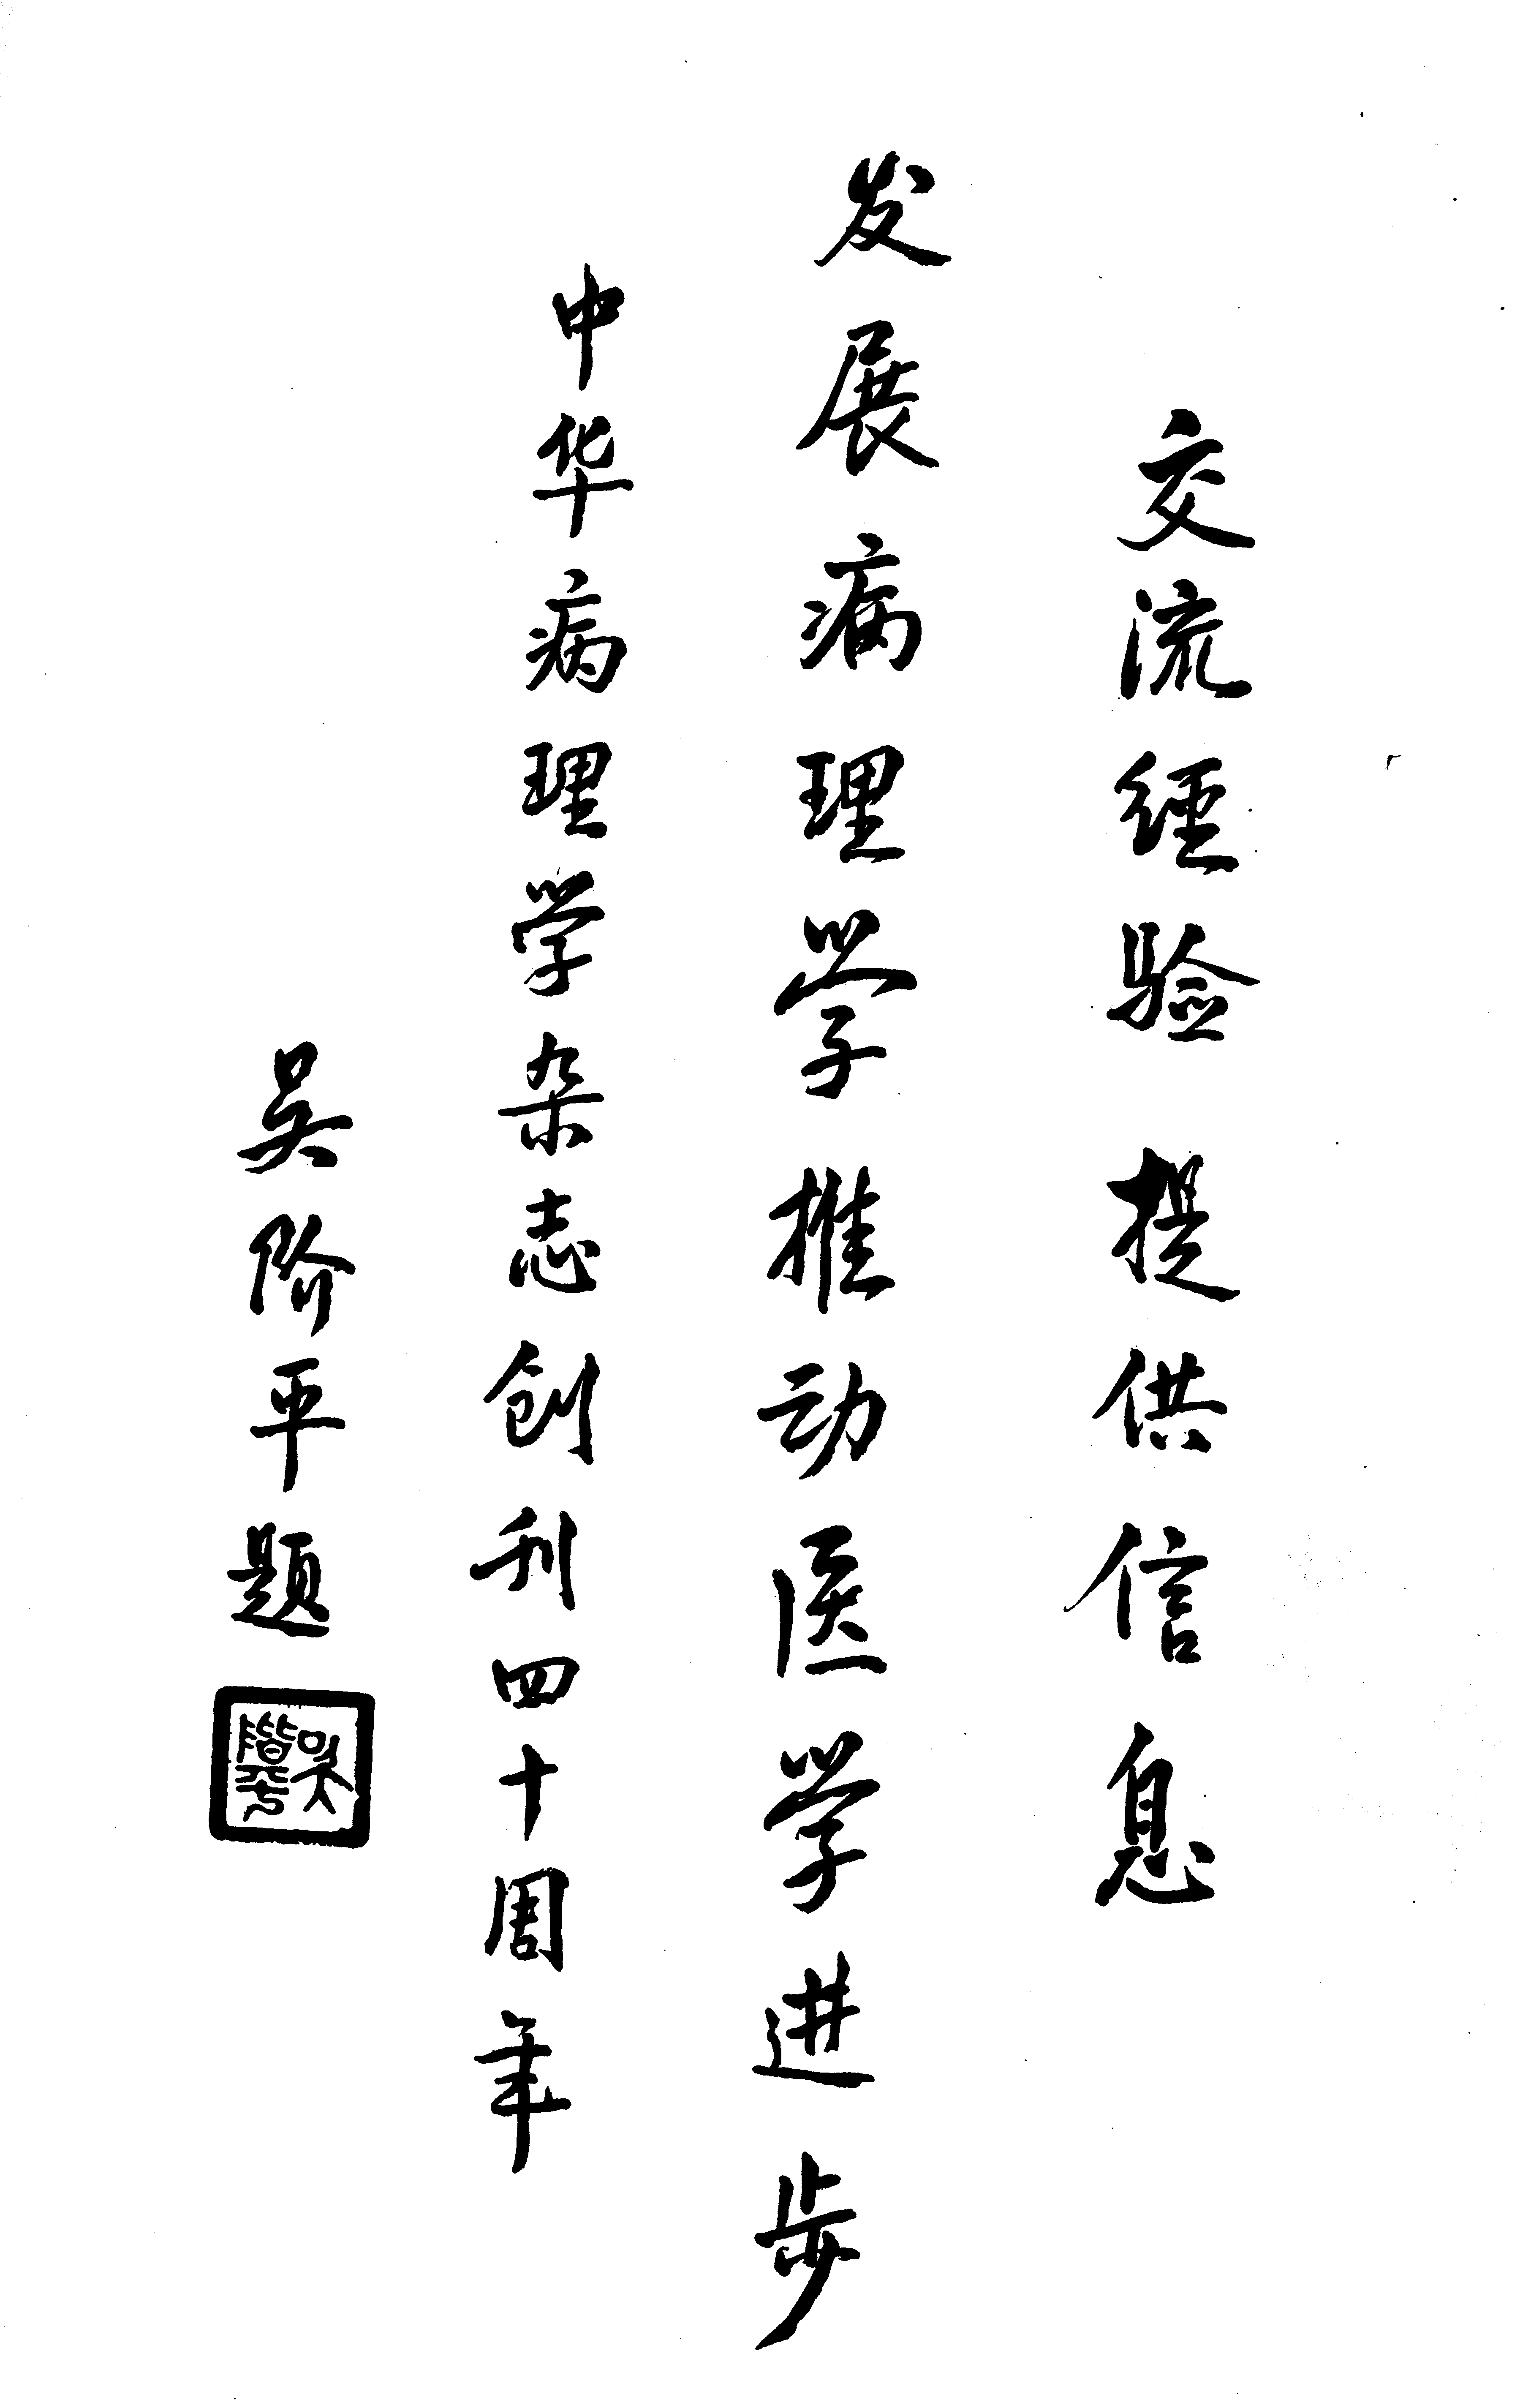 交流经验 提供信息
发展病理学推动医学进步
中华病理学杂志创刊四十周年
吴阶平题
吴阶平